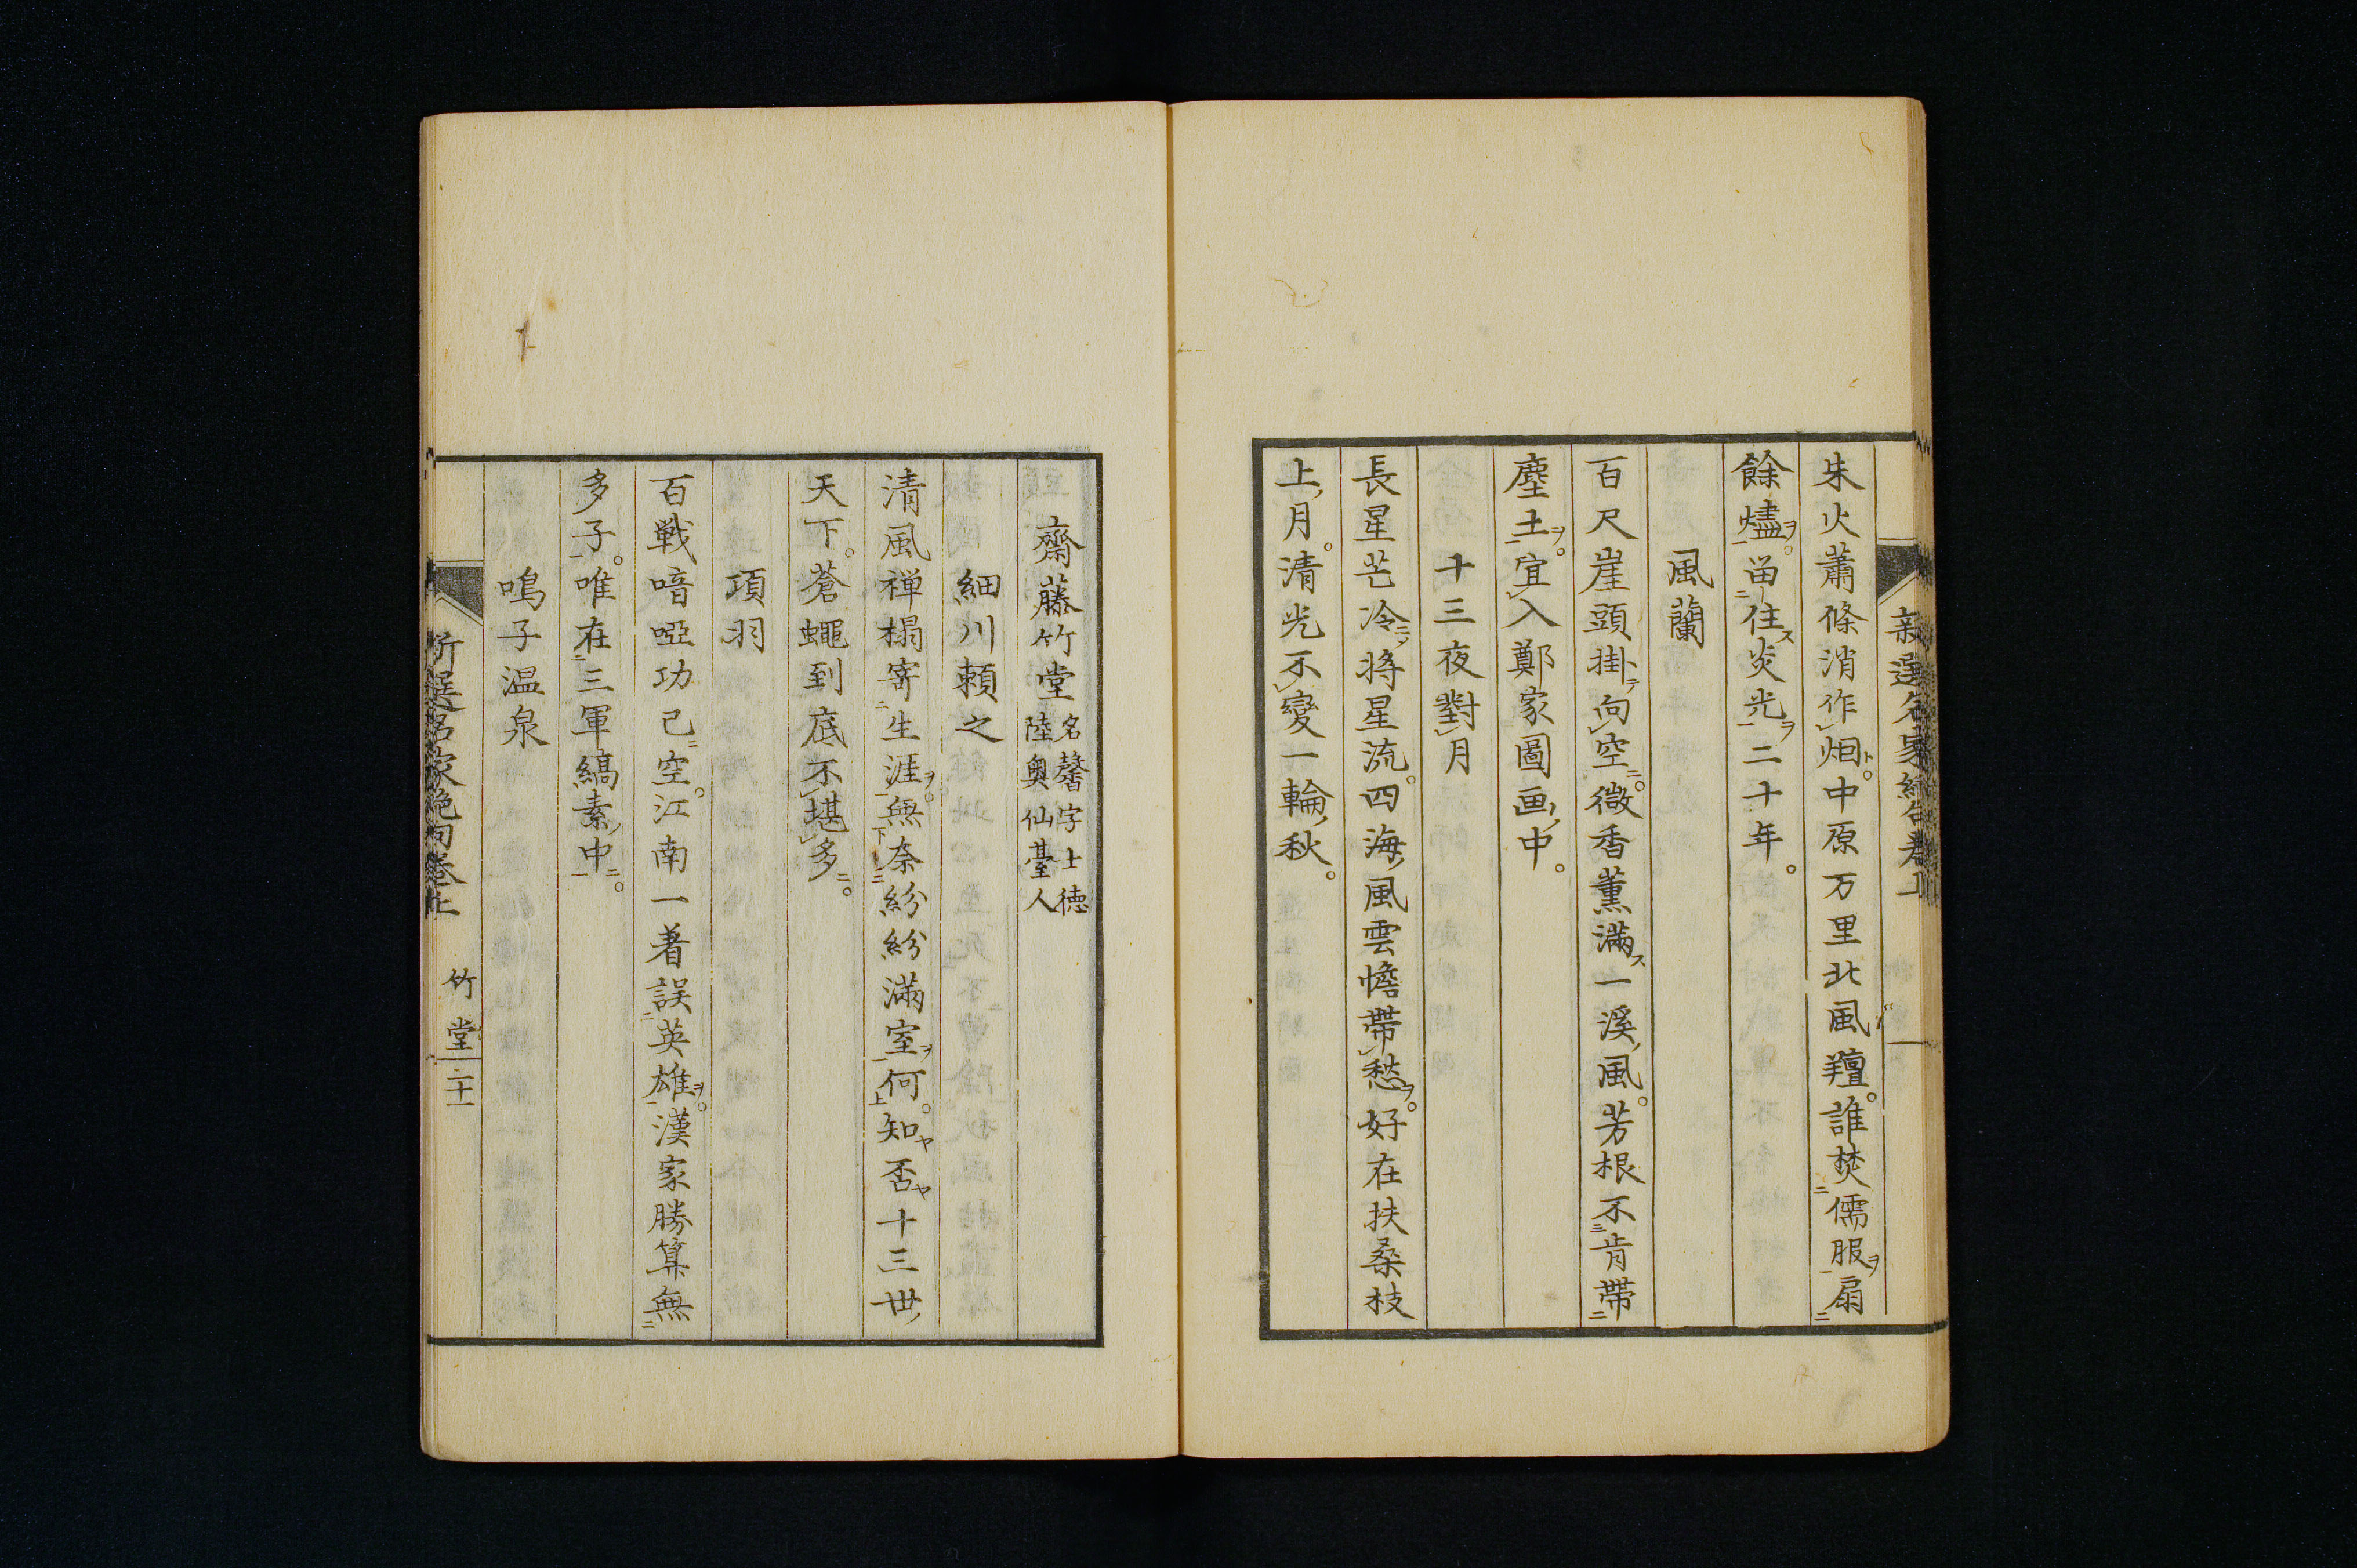 朱火蕭條消作烟中原万里北風羶誰焚儒服扇
餘燼畄住炎光二十年
風蘭
百尺崖頭掛向空微香薫滿一溪風芳根不肯帶
塵土宜入鄭家圖画中
十三夜對月
長星芒冷将星流四海風雲惨帶愁好在扶桑枝
上月清光不變一輪秋
齋藤竹堂
名馨字士徳
陸奥仙臺人
細川頼之
清風禅榻寄生涯無奈紛紛滿室何知否十三世
天下蒼蠅到底不堪多
項羽
百戦喑啞功已空江南一着誤英雄漢家勝算無
多子唯在三軍縞素中
鳴子温泉
竹堂
二十一